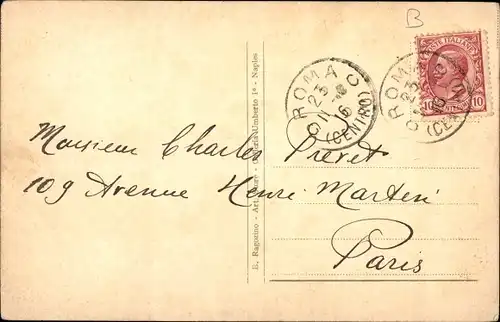 B
POSTE ITALIANE
10 10
ROMA
(CENTRO)
23
11
16
ROMA
23
Monsieur Charles Prevet
109 Avenue Henri Martin
Paris
E. Ragozino - Art. - Galleria Umberto Iº - Naples